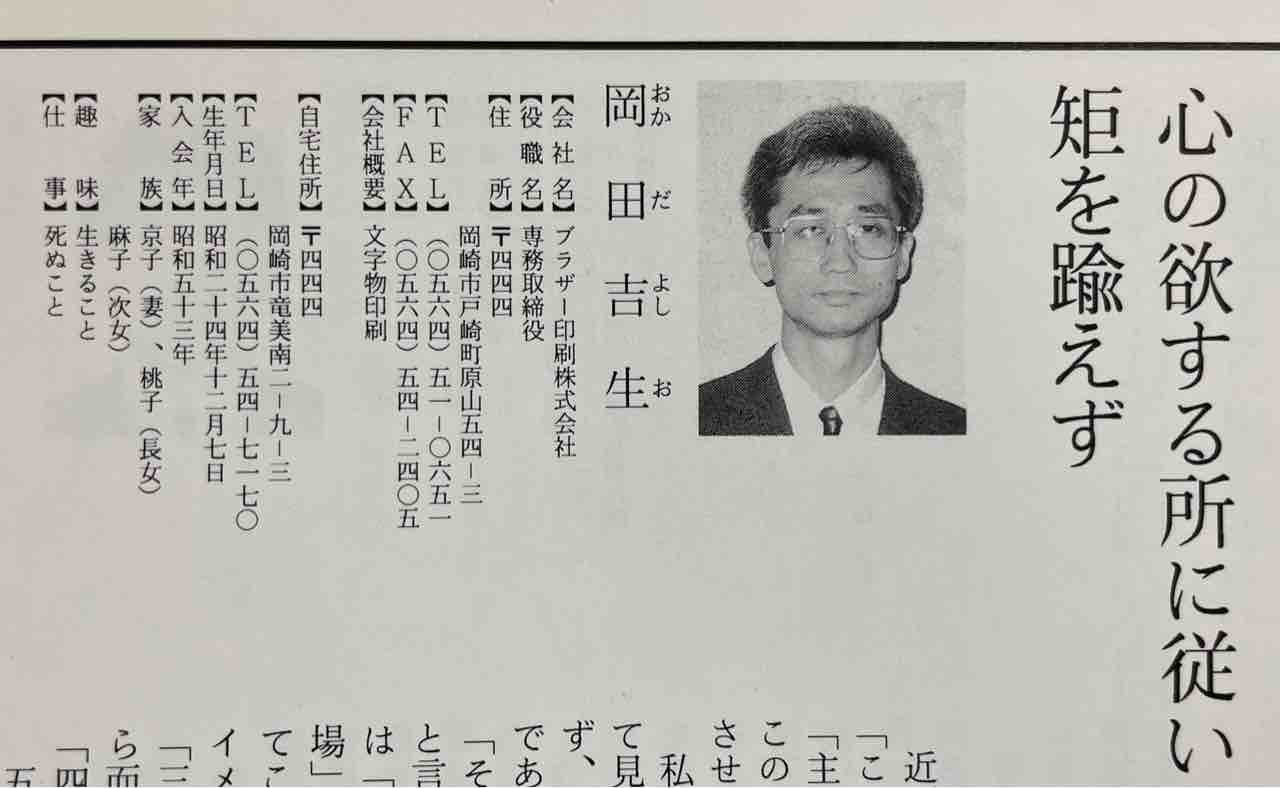 心の欲する所に従い
矩を踰えず
おか だ よし お
岡田吉生
【会社名】ブラザー印刷株式会社
【役職名】専務取締役
【住 所】〒四四四
岡崎市戸崎町原山五四－三
【TEL】（〇五六四）五一－〇六五一
【FAX】（〇五六四）五四－二四〇五
【会社概要】文字物印刷
【自宅住所】〒四四四
岡崎市竜美南二－九－三
【TEL】（〇五六四）五四－七一七〇
【生年月日】昭和二十四年十二月七日
【入会年】昭和五十三年
【家 族】京子（妻）、桃子（長女）
麻子（次女）
【趣 味】生きること
【仕 事】死ぬこと
近
「こ
「主
この
させ
私
て見
ず、
であ
「そ
と言
は「
場」
てこ
イメ
「三
ら面
「四
五